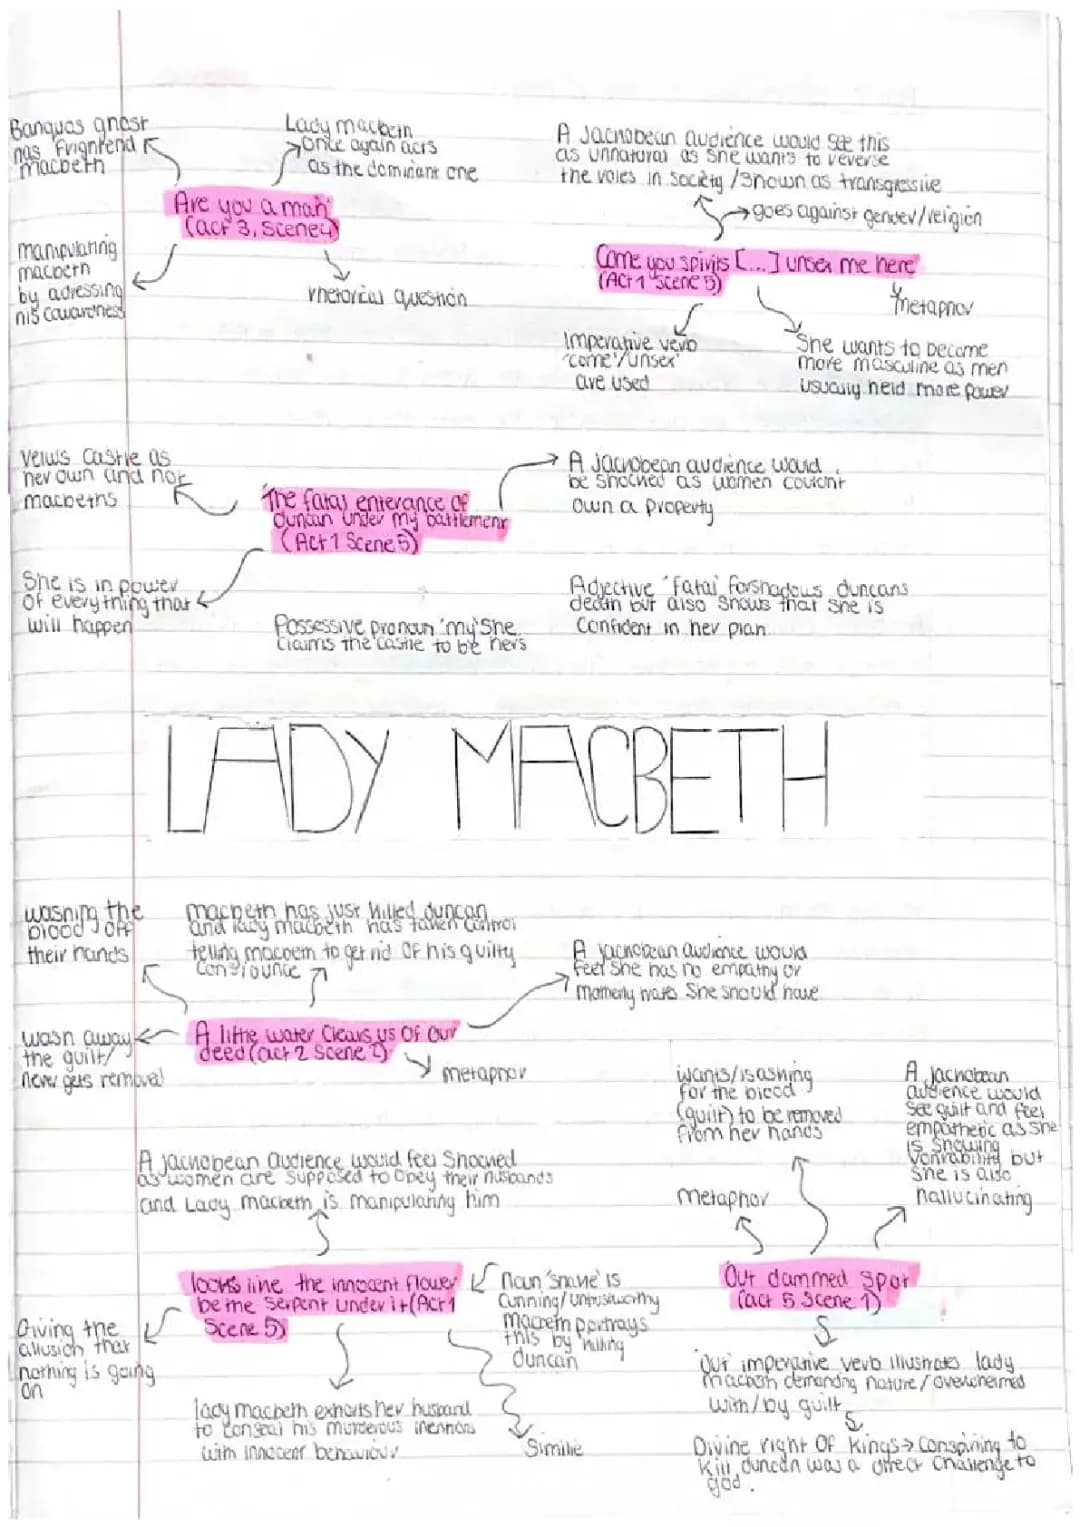 Banquos ghost
has frightend
macbeth
Lady macbeth
once again acts
as the dominant one
Are you a man'
(act 3, scene4)
manipulating
macbeth
by adressing
his cowardness
rhetorical question
A Jachobean audience would see this
as unnatural as she wants to reverse
the roles in society / shown as transgressive
goes against gender/religion
Come you spirits [...] unsex me here'
(Act 1 scene 5)
metaphor
Imperative verb
'come'/unsex'
are used
She wants to become
more masculine as men
usually held more power
veiws castle as
her own and not
macbeths
The fatal enterance of
Duncan under my battlement
(Act 1 Scene 5)
A jachobean audience would
be shocked as women couldnt
own a property
She is in power
of everything that
will happen
Possessive pronoun 'my' She
claims the castle to be hers
Adjective 'fatal' forshadows duncans
death but also shows that she is
confident in her plan
LADY MACBETH
washing the
blood off
their hands
macbeth has just killed duncan
and lady macbeth has taken control
telling macbeth to get rid of his guilty
A jachobean audience would
feel she has no empathy or
traits she should have
wash away
the guilt/
never gets removal
A little water clears us of our
deed (act 2 scene 2)
metaphor
wants/is asking
for the blood
(guilt) to be removed
from her hands
A jachobean
audience would
see guilt and feel
empathetic as she
is showing
but
she is also
hallucinating
A jachobean audience would feel shocked
as women are supposed to obey their husbands
and Lady macbeth is manipulating him
metaphor
looks like the innocent flower
be the serpent under it (Act 1
Scene 5)
noun 'snake' is
cunning/untrustworthy
macbeth portrays
this by killing
duncan
Out dammed spot'
(act 5 scene 1)
Giving the
allusion that
nothing is going
on
lady macbeth exhorts her husband
to conseal his murderous
with innocent behaviour
Similie
'Out' imperative verb illustrates lady
macbeth demanding nature / overwhelmed
with/by guilt
Divine right of kings → conspiring to
kill duncan was a direct challenge to
god.